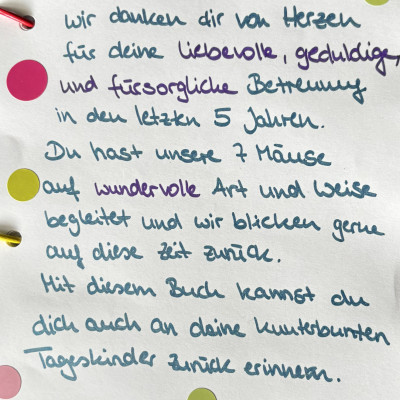 wir danken dir von Herzen
für deine liebevolle, geduldige,
und fürsorgliche Betreuung
in den letzten 5 Jahren.
Du hast unsere 7 Mäuse
auf wundervolle Art und Weise
begleitet und wir blicken gerne
auf diese Zeit zurück.
Mit diesem Buch kannst du
dich auch an deine kunterbunten
Tageskinder zurück erinnern.